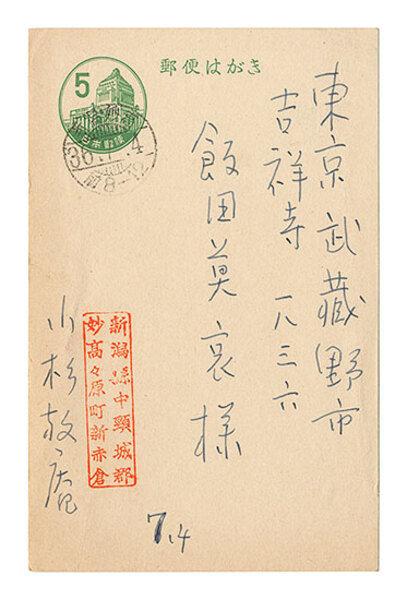 郵便はがき
5
日本郵便
36.7.4
前8-12
東京武蔵野市
吉祥寺 一八三六
飯田莫哀様
新潟縣中頸城郡
妙高々原町新赤倉
小杉放庵
7.4